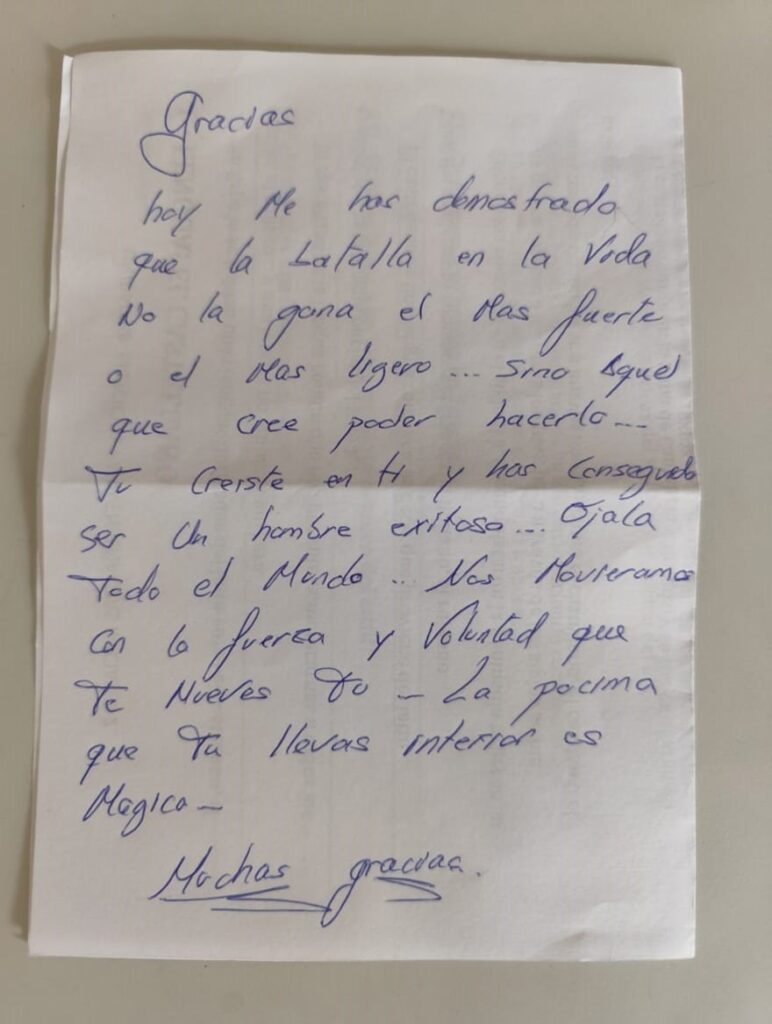 Gracias
hoy Me has demostrado
que la batalla en la Vida
No la gana el Mas fuerte
o el Mas ligero... Sino Aquel
que cree poder hacerlo...
Tu Creiste en ti y has Conseguido
ser Un hombre exitoso... Ojala
Todo el Mundo.. Nos Movieramos
Con la fuerza y Voluntad que
Te Mueves Tu - La pocima
que Tu llevas interior es
Magica -
Muchas gracias.